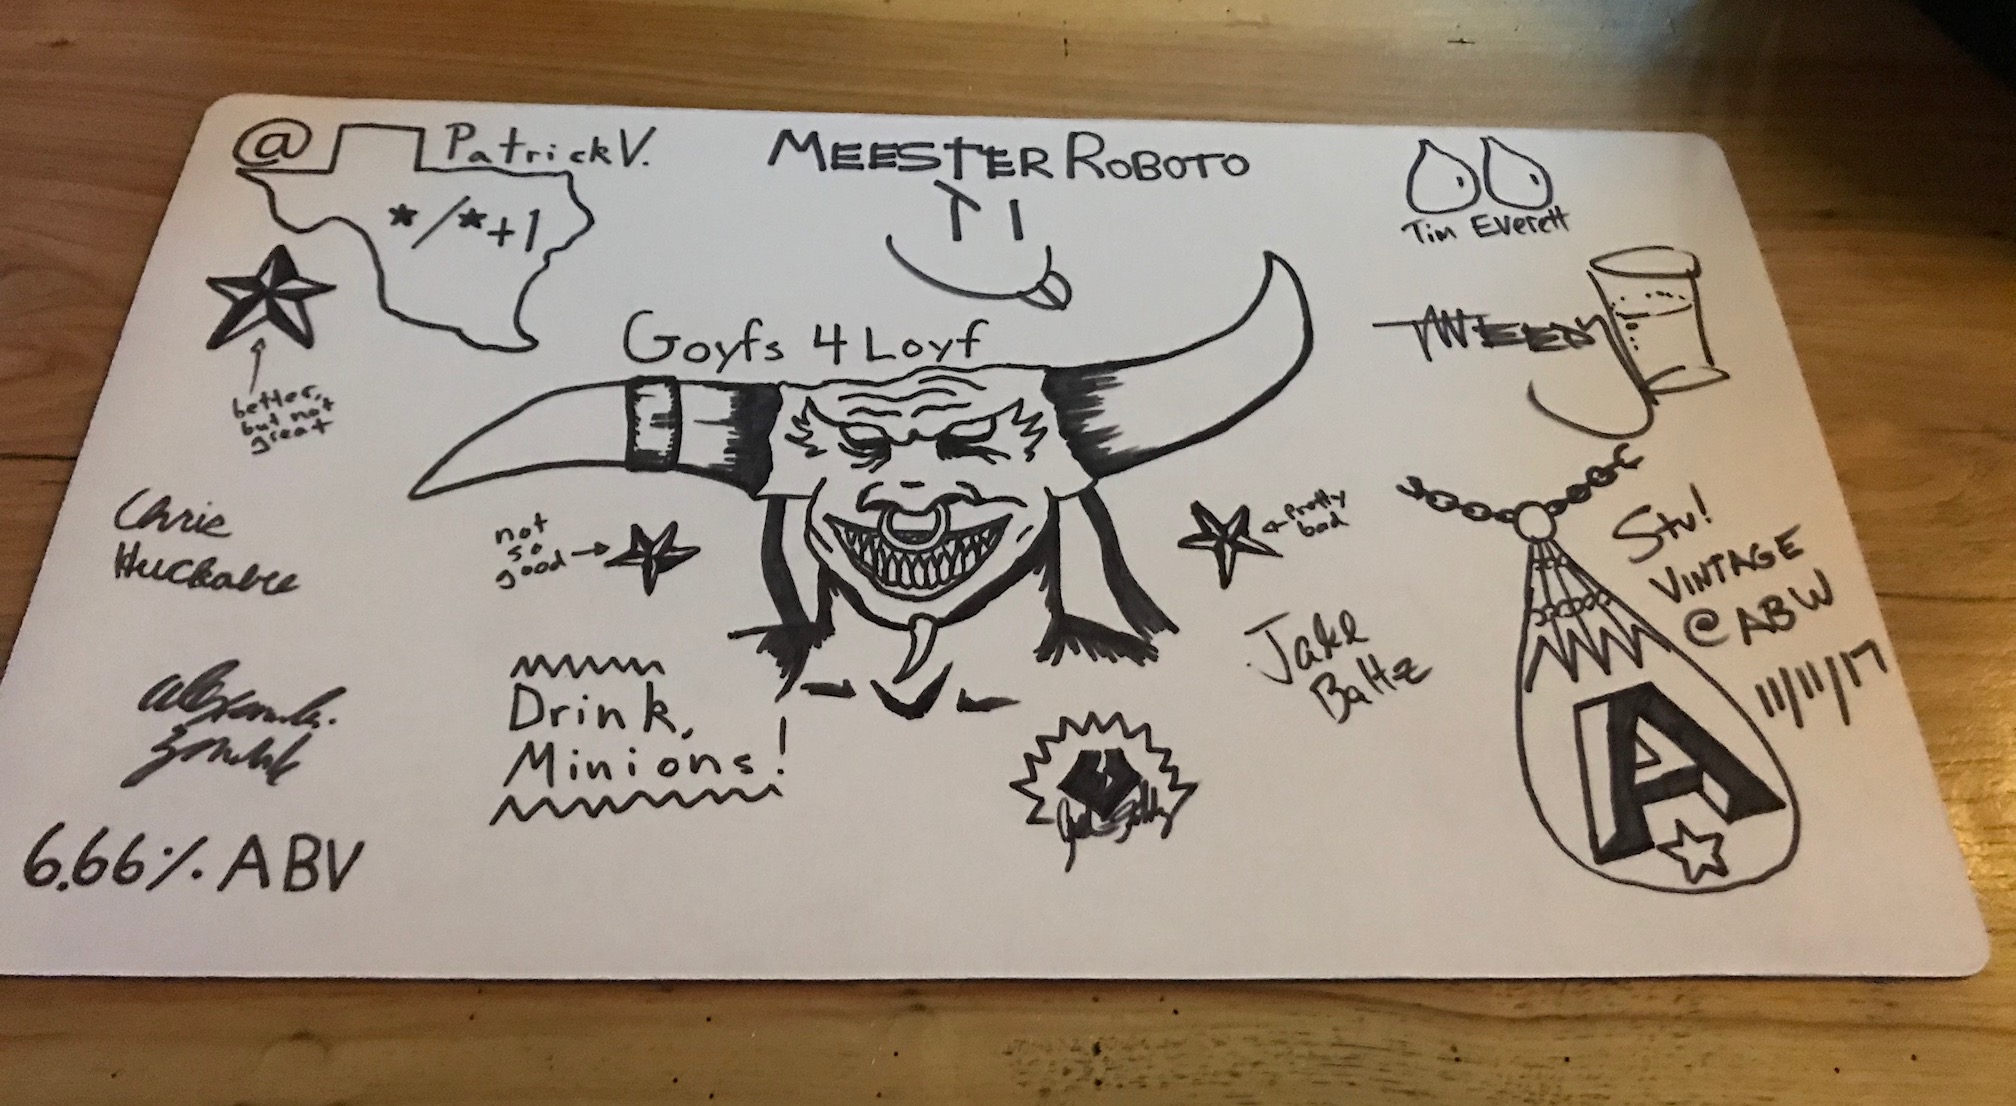 @ Patrick V.
*/*+1
MEESTER ROBOTO
Tim Everett
better,
but not
great
Goyfs 4 Loyf
TWEEDY
Chris
Huckabee
not
so
good
pretty
bad
Stu!
VINTAGE
@ ABW
11/11/17
Jake
Baltz
Drink,
Minions!
A
6.66% ABV